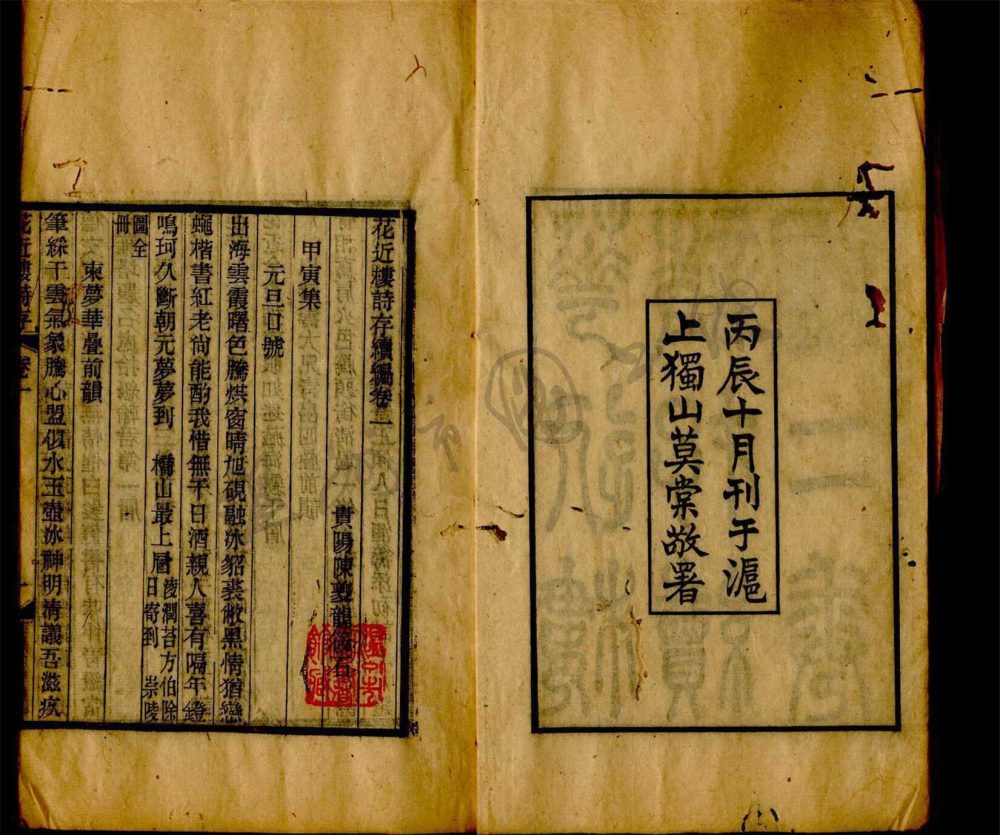 丙辰十月刊于滬
上獨山莫棠敬署
花近樓詩存續編卷一
甲寅集
貴陽陳夔龍筱石
元旦口號
出海雲霞曙色騰烘窗晴旭硯融冰貂裘敝黑情猶戀
蠅楷書紅老尚能酌我惜無千日酒親人喜有隔年鐙
鳴珂久斷朝元夢夢到 橋山最上層淩潤苔方伯除日寄到 崇陵
圖全
冊
柬夢華疊前韻
筆綵干雲氣象騰心盟似水玉壺冰神明清議吾滋疚
花近樓詩存 卷一